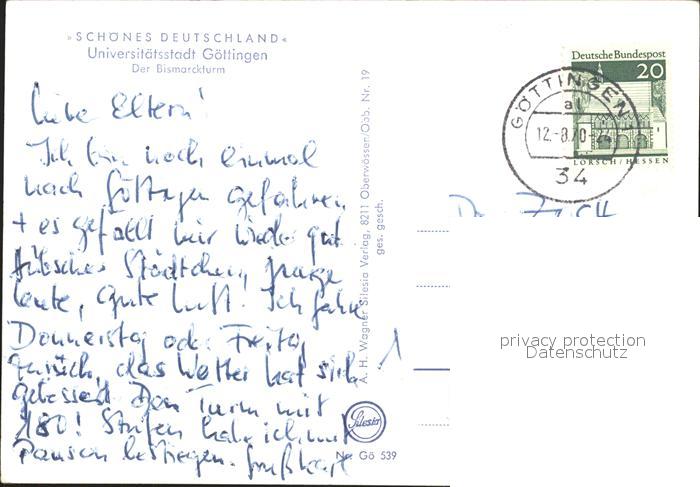 »SCHÖNES DEUTSCHLAND«
Universitätsstadt Göttingen
Der Bismarckturm
Liebe Eltern!
Ich bin noch einmal
nach Göttingen gefahren
+ es gefällt mir wieder gut
Hübsches Städtchen, junge
Leute, gute Luft. Ich fahre
Donnerstag oder Freitag
zurück, das Wetter hat sich
gebessert. Den Turm mit
180! Stufen habe ich mit
Pausen bestiegen.
A. H. Wagner Silesia Verlag, 8211 Oberwössen/Obb. Nr. 19
ges. gesch.
Silesia
Nr. Gö 539
Deutsche Bundespost
20
LORSCH/HESSEN
GÖTTINGEN
12.-8.70-24
34
privacy protection
Datenschutz